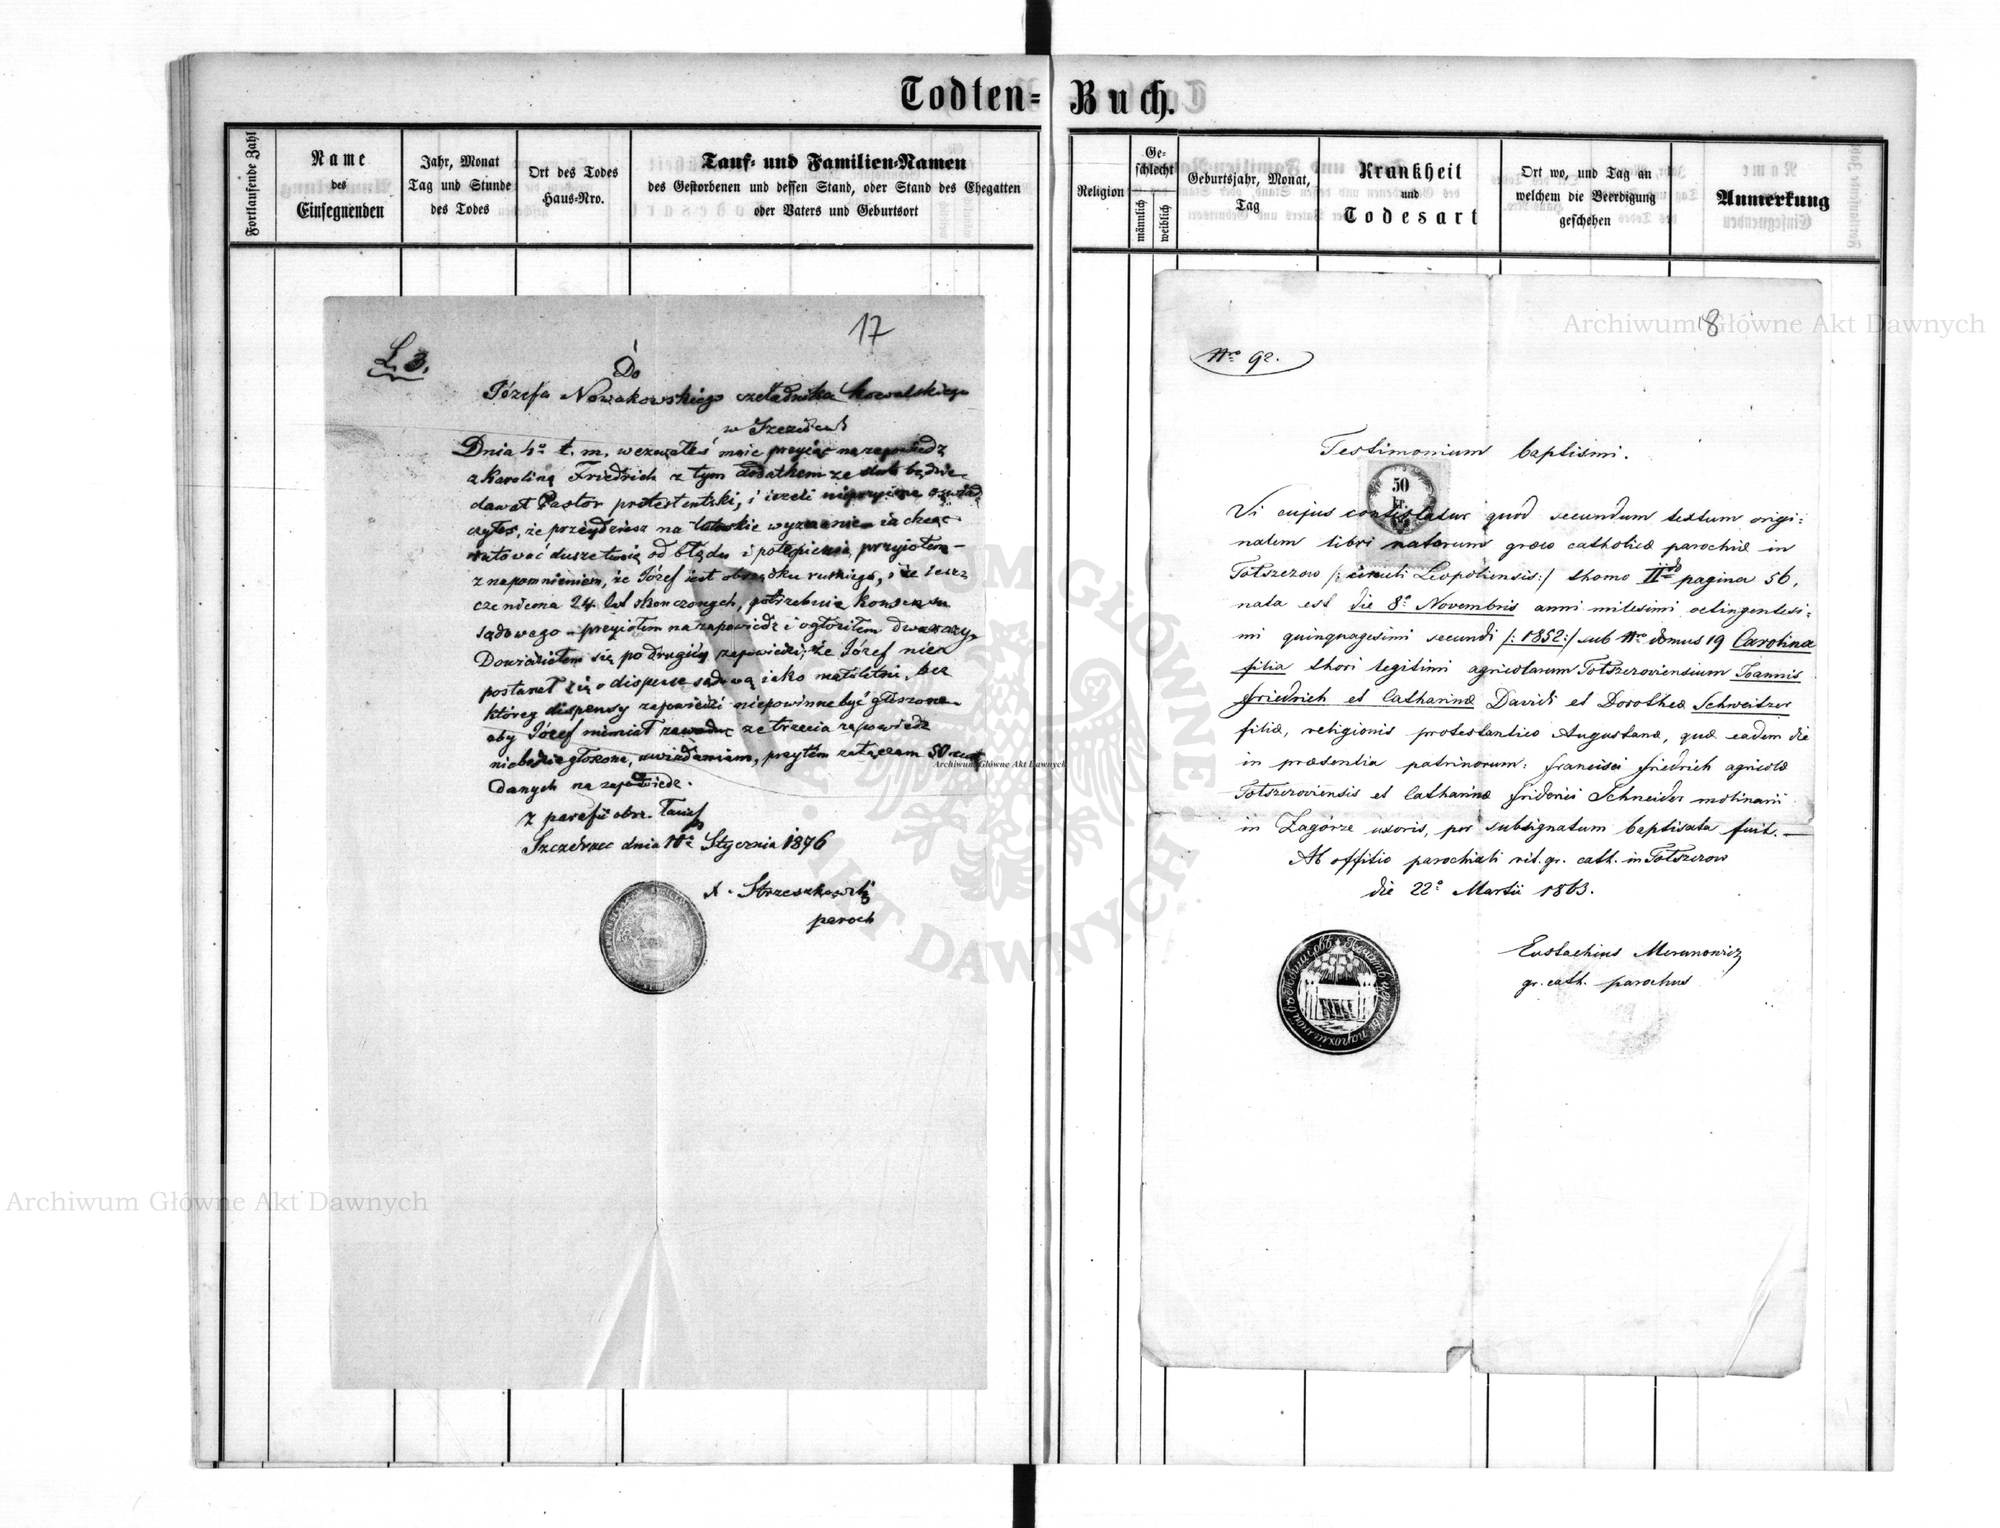 Todten-Buch.
Fortlaufende Zahl
Name
des
Einsegnenden
Jahr, Monat
Tag und Stunde
des Todes
Ort des Todes
Haus-Nro.
Tauf- und Familien-Namen
des Gestorbenen und dessen Stand, oder Stand des Ehegatten
oder Vaters und Geburtsort
Religion
Ge-
schlecht
männlich
weiblich
Geburtsjahr, Monat,
Tag
Krankheit
und
Todesart
Ort wo, und Tag an
welchem die Beerdigung
geschehen
Anmerkung
17
L. 3.
Do
Józefa Nowakowskiego czeladnika kowalskiego
w
Dnia 4º t. m. wezwałeś mnie przyjąć na zapowiedź
z Karoliną Friedrich z tym dodatkem ze ślub będzie
dawał Pastor protestentski, i jezeli nieprzyjme oswiad
czyłes, że przéydziesz na wyznanie ia chcąc
ratować dusze twoią od błędu i potępienia przyiołem
z napomnieniem, że Józef iest obrządku ruskiego, i że iesz
cze niema 24 lat skonczonych, potrzebuie konsensu
sądowego – przyiołem na zapowiedz i ogłosiłem dwa razy.
Dowiedziełem się po drugiéy zapowiedzi, że Józef nie
postarał się o dispense sądową iako małoletni, bez
któréy dispensy zapowiedzi niepowinne być głoszone
aby Józef niemiał ze trzecia zapowiedz
niebędzie głoszona, uwiadamiam, przytém załączam 50
Danych na zapowiedz.
z parafii obrz. łaciń
Szczerzec dnia Stycznia 1876
A. Strzeszkowski
paroch
8
Nro 92.
Testimonium baptismi.
50
kr.
Vi cujus contestatur quod secundum textum origi:
nalem libri natorum graeco catholicæ parochiæ in
Tołszczow /: circuli Leopoliensis :/ thomo II pagina 56,
nata est die 8º Novembris anni milesimi octingentesi:
mi quinquagesimi secundi /: 1852 :/ sub Nro domus 19 Carolina
filia thori legitimi agricolarum Tołszczoviensium Joannis
Friedrich et Catharinæ Davidi et Dorotheæ Schweitzer
filiæ, religionis protestantico Augustanæ, quæ eadem die
in præsentia patrinorum: Francisci Friedrich agricolæ
Tołszczoviensis et Catharinæ Friderici Schneider molinarii
in Zagórze uxoris, per subsignatum baptisata fuit. —
Ab offitio parochiali rit. gr. cath. in Tołszczow
die 22º Martii 1863.
Eustachius Meranowicz
gr. cath. parochus
Archiwum Główne Akt Dawnych
Archiwum Główne Akt Dawnych
Archiwum Główne Akt Dawnych